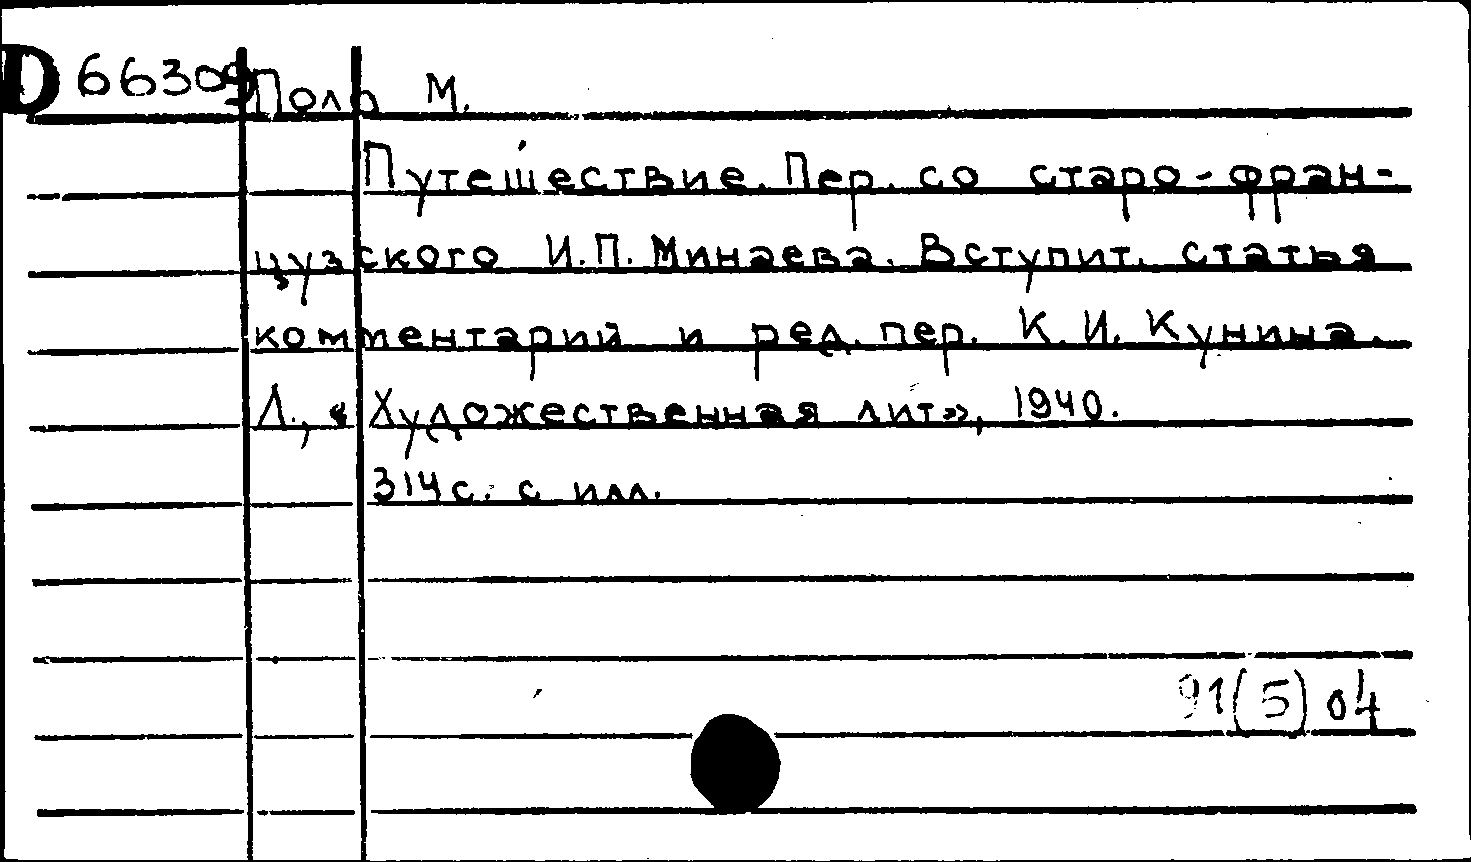 D 66309 Поло М.
Путешествие. Пер. со старо-фран-
цузского И.П. Минаева. Вступит. статья
комментарий и ред. пер. К.И. Кунина.
Л., «Художественная лит», 1940.
314 с. с илл.
91(5)04